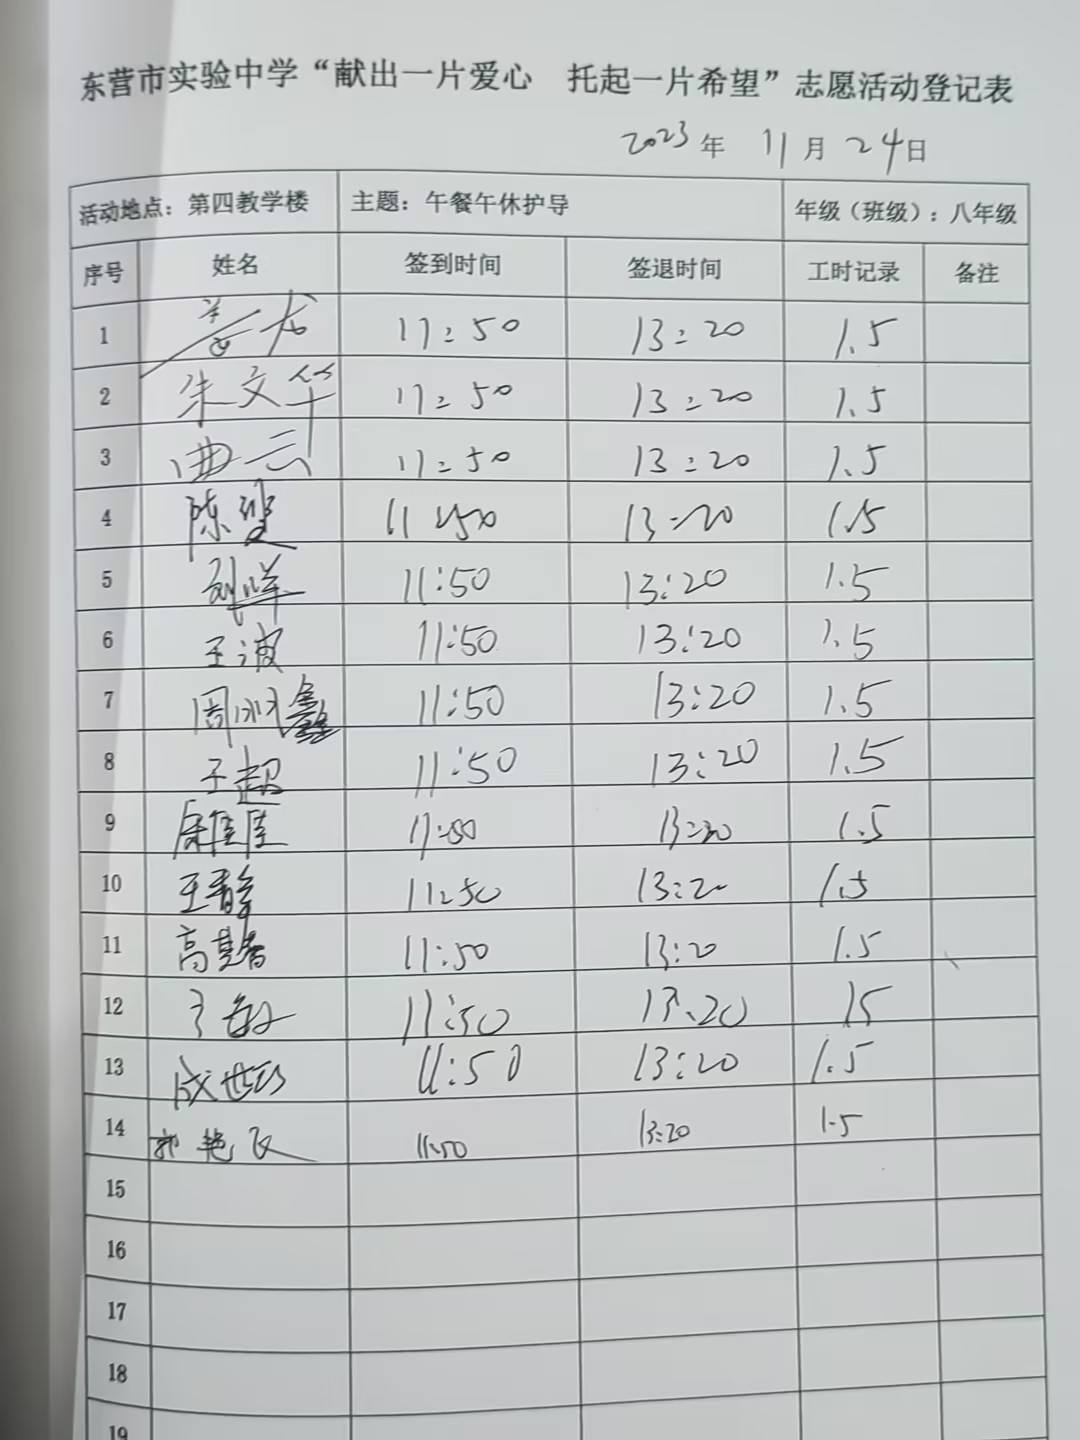 东营市实验中学“献出一片爱心 托起一片希望”志愿活动登记表
2023年 11月 24日
活动地点：第四教学楼 主题：午餐午休护导 年级（班级）：八年级
序号 姓名 签到时间 签退时间 工时记录 备注
1 11:50 13:20 1.5
2 朱文华 11:50 13:20 1.5
3 曲云 11:50 13:20 1.5
4 陈 11:50 13:20 1.5
5 11:50 13:20 1.5
6 王波 11:50 13:20 1.5
7 周 鑫 11:50 13:20 1.5
8 超 11:50 13:20 1.5
9 佳佳 13:20 1.5
10 王静 11:50 13:20 1.5
11 高 11:50 13:20 1.5
12 11:50 13:20 15
13 成世 11:50 13:20 1.5
14 艳 11:50 13:20 1.5
15
16
17
18
19